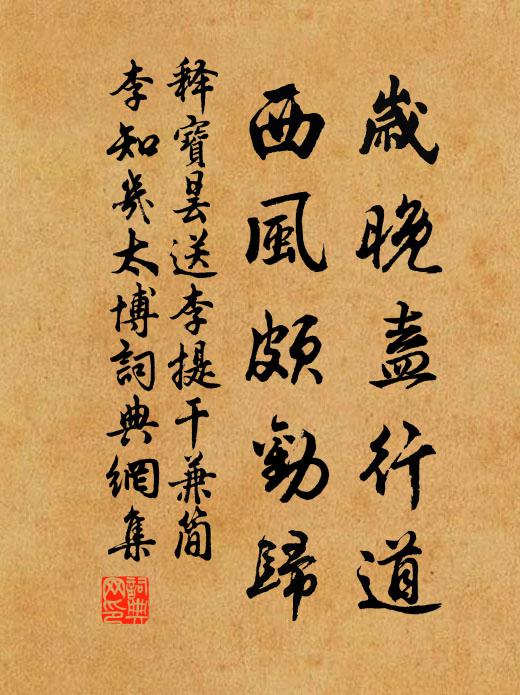 歲晚盍行道
西風頗勸歸
釋寶曇送李提干兼簡
李知幾太博詞典網集
詞典网印